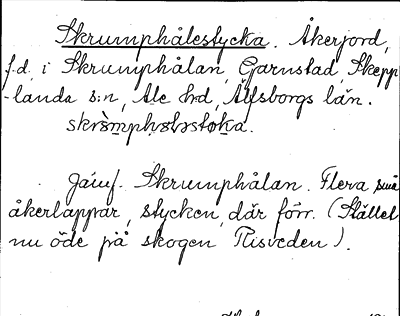 Skrumphålestycka. Åkerjord,
f.d. i Skrumphålan, Garnstad, Skepp
-landa s:n, Ale hd, Älfsborgs län.
Jämf. Skrumphålan. Flera små
åkerlappar, stycken, där förr. (Stället
nu öde på skogen Risveden).